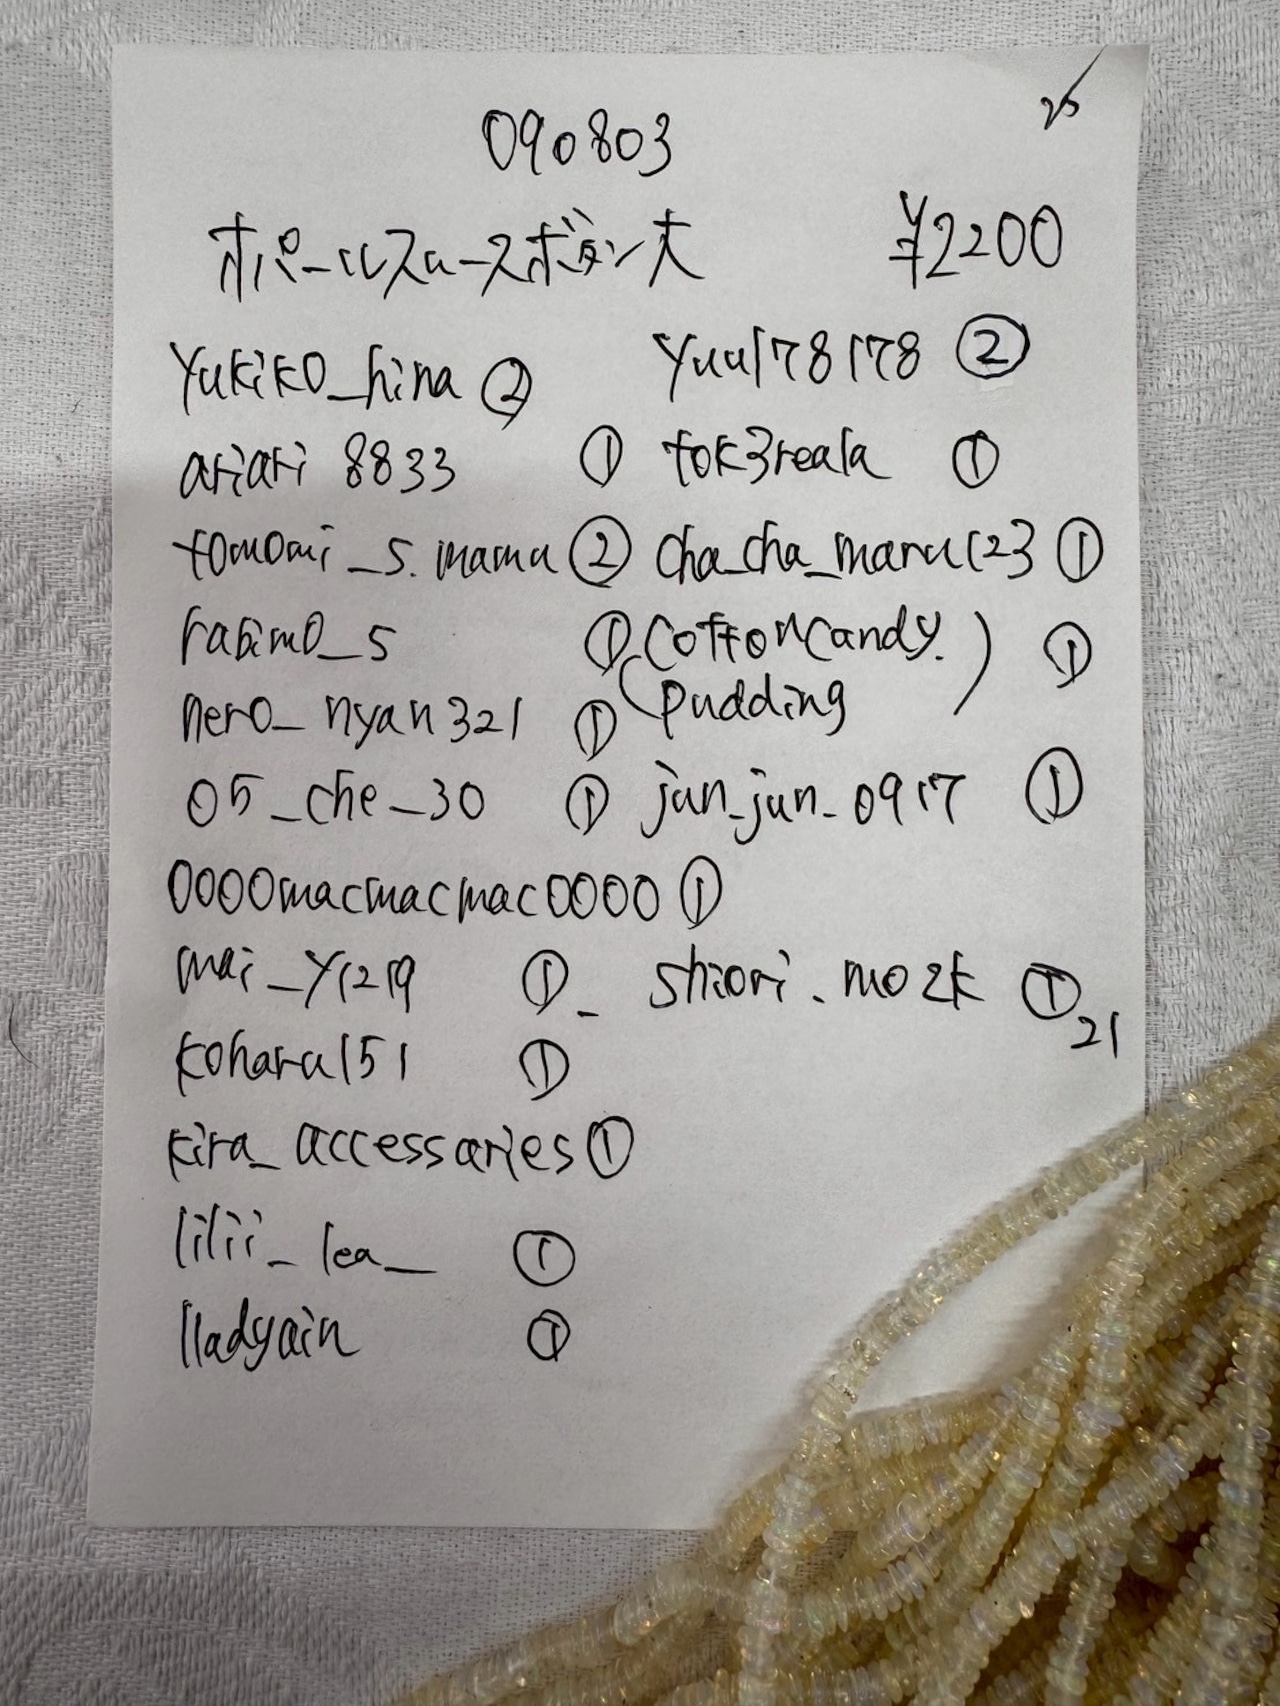 25
090803
オパールスムースボタン大 ¥2200
Yukiko_hina ② yuu178178 ②
ariari8833 ① tok3reala ①
tomomi_s.mama ② cha_cha_maru123 ①
rabimo_5 ① (cottoncandy.
pudding) ①
nero_nyan321 ①
05_che_30 ① jun_jun_0917 ①
0000macmacmac0000 ①
mai_y1219 ①_ shiori.mo2k ① 21
koharu151 ①
kira_accessaries ①
lilii_lea_ ①
lladyain ①